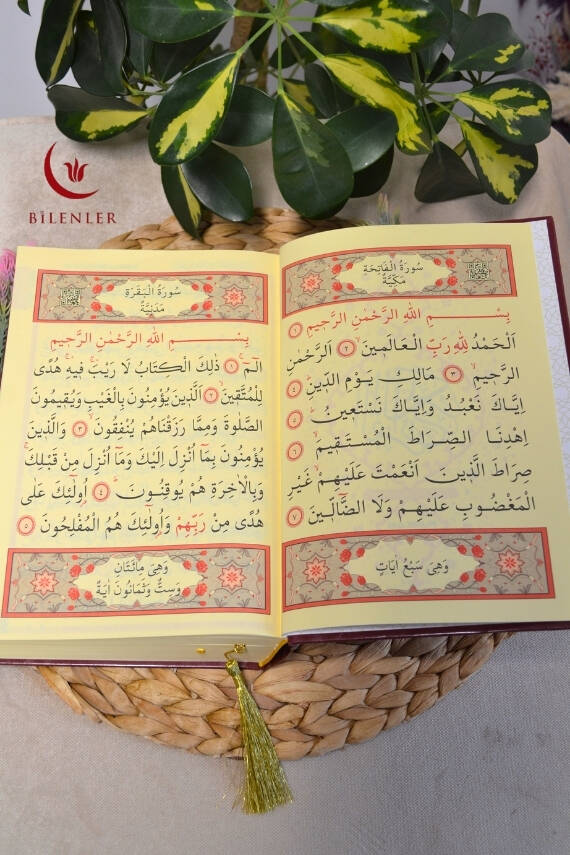 BİLENLER
سُورَةُ الْفَاتِحَةِ
مَكِّيَّةٌ
بِسْــــــمِ اللّٰهِ الرَّحْمٰنِ الرَّحٖيمِ ﴿١﴾
اَلْحَمْدُ لِلّٰهِ رَبِّ الْعَالَمٖينَ ﴿٢﴾ اَلرَّحْمٰنِ
الرَّحٖيمِ ﴿٣﴾ مَالِكِ يَوْمِ الدّٖينِ ﴿٤﴾
اِيَّاكَ نَعْبُدُ وَاِيَّاكَ نَسْتَعٖينُ ﴿٥﴾
اِهْدِنَا الصِّرَاطَ الْمُسْتَقٖيمَ ﴿٦﴾
صِرَاطَ الَّذٖينَ اَنْعَمْتَ عَلَيْهِمْ غَيْرِ
الْمَغْضُوبِ عَلَيْهِمْ وَلَا الضَّٓالّٖينَ ﴿٧﴾
وَهِىَ سَبْعُ اٰيَاتٍ
سُورَةُ الْبَقَرَةِ
مَدَنِيَّةٌ
بِسْــــــمِ اللّٰهِ الرَّحْمٰنِ الرَّحٖيمِ
الٓمٓ ﴿١﴾ ذٰلِكَ الْكِتَابُ لَا رَيْبَ فٖيهِ هُدًى
لِلْمُتَّقٖينَ ﴿٢﴾ اَلَّذٖينَ يُؤْمِنُونَ بِالْغَيْبِ وَيُقٖيمُونَ
الصَّلٰوةَ وَمِمَّا رَزَقْنَاهُمْ يُنْفِقُونَ ﴿٣﴾ وَالَّذٖينَ
يُؤْمِنُونَ بِمَٓا اُنْزِلَ اِلَيْكَ وَمَٓا اُنْزِلَ مِنْ قَبْلِكَ
وَبِالْاٰخِرَةِ هُمْ يُوقِنُونَ ﴿٤﴾ اُو۬لٰٓئِكَ عَلٰى
هُدًى مِنْ رَبِّهِمْ وَاُو۬لٰٓئِكَ هُمُ الْمُفْلِحُونَ ﴿٥﴾
وَهِىَ مِائَتَانِ
وَسِتٌّ وَثَمَانُونَ اٰيَةً